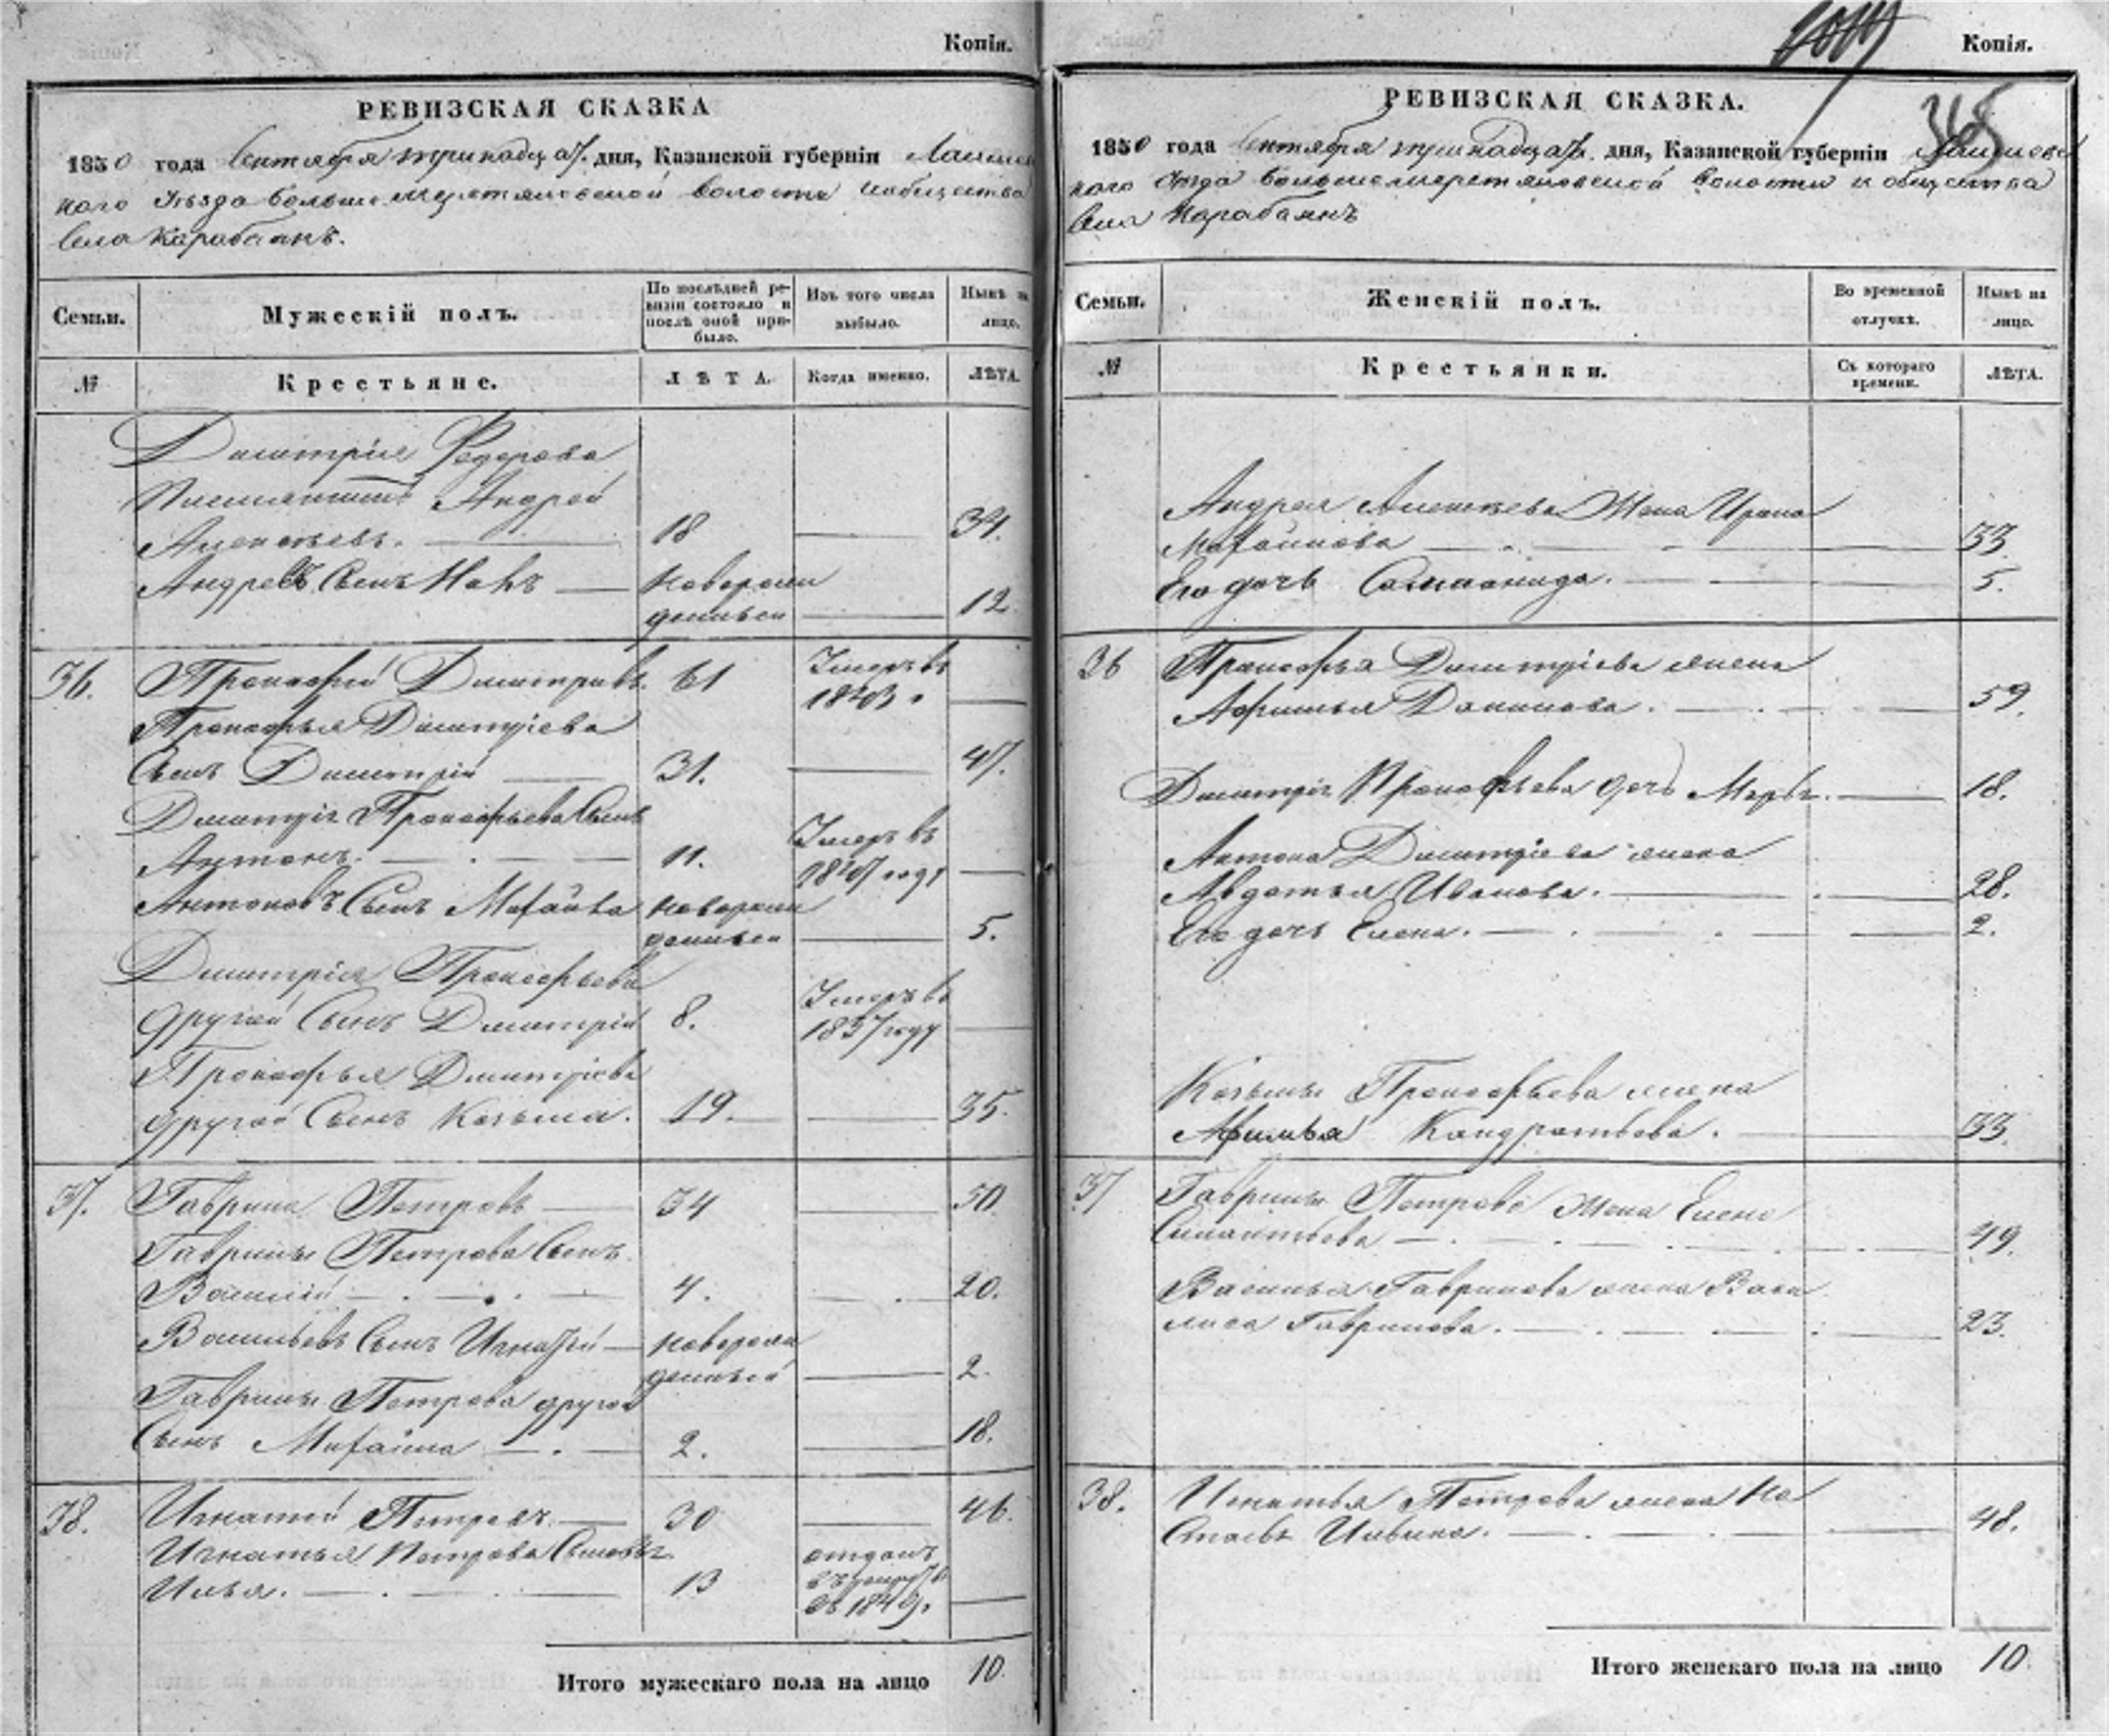 Копія.
РЕВИЗСКАЯ СКАЗКА
1850 года Сентября тринадцат. дня, Казанской губерніи Лаишев
скаго Уѣзда Больше меретяковской волости и общества
Села Карабаянъ.
Семьи. Мужескій полъ. По послѣдней ре-визіи состояло и послѣ оной при-было. Изъ того числа выбыло. Нынѣ на лицо.
№ Крестьяне. ЛѢТА. Когда именно. ЛѢТА.
Дмитрія Федорова
Племянникъ Андрей
Алексѣевъ. 18 34.
Андреевъ Сынъ Иовъ Новорож
денный 12
36. Прокофій Дмитріевъ. 61 Умеръ въ
1843.
Прокофья Дмитріева
Сынъ Дмитрій 31. 47.
Дмитрія Прокофьева Сынъ
Антонъ. 11. Умеръ въ
1847 году
Антоновъ Сынъ Михайла новорож
денный 5.
Дмитрія Прокофьева
другой Сынъ Дмитрій 8. Умеръ въ
1837 году
Прокофья Дмитріева
другой Сынъ Козьма. 19. 35.
37. Гаврила Петровъ 34 50.
Гаврилы Петрова Сынъ
Василій 4. 20.
Васильевъ Сынъ Игнатій новорож
денный 2.
Гаврилы Петрова другой
Сынъ Михайла 2. 18.
38. Игнатій Петровъ 30 46.
Игнатья Петрова Сыновья
Илья. 13 отданъ
въ рекруты
въ 1849.
Итого мужескаго пола на лицо 10.
Копія.
РЕВИЗСКАЯ СКАЗКА.
1850 года Сентября тринадцат. дня, Казанской губерніи Лаишевс
каго Уѣзда Больше меретяковской волости и общества
Села Карабаянъ
Семьи. Женскій полъ. Во временной отлучкѣ. Нынѣ на лицо.
№ Крестьянки. Съ котораго времени. ЛѢТА.
Андрея Алексѣева Жена Ирина
Михайлова 33.
Его дочь Соломонида. 5.
36 Прокофья Дмитріева жена
Афимья Данилова. 59.
Дмитрія Прокофьева дочь Марья. 18.
Антона Дмитріева жена
Авдотья Иванова. 28.
Его дочь Елена. 2.
Козьмы Прокофьева жена
Афимья Кондратьева. 33.
37 Гаврилы Петрова Жена Елена
49.
Василья Гаврилова жена Васи
лиса Гаврилова. 23.
38. Игнатья Петрова жена На
стасья Ильина. 48.
Итого женскаго пола на лицо 10